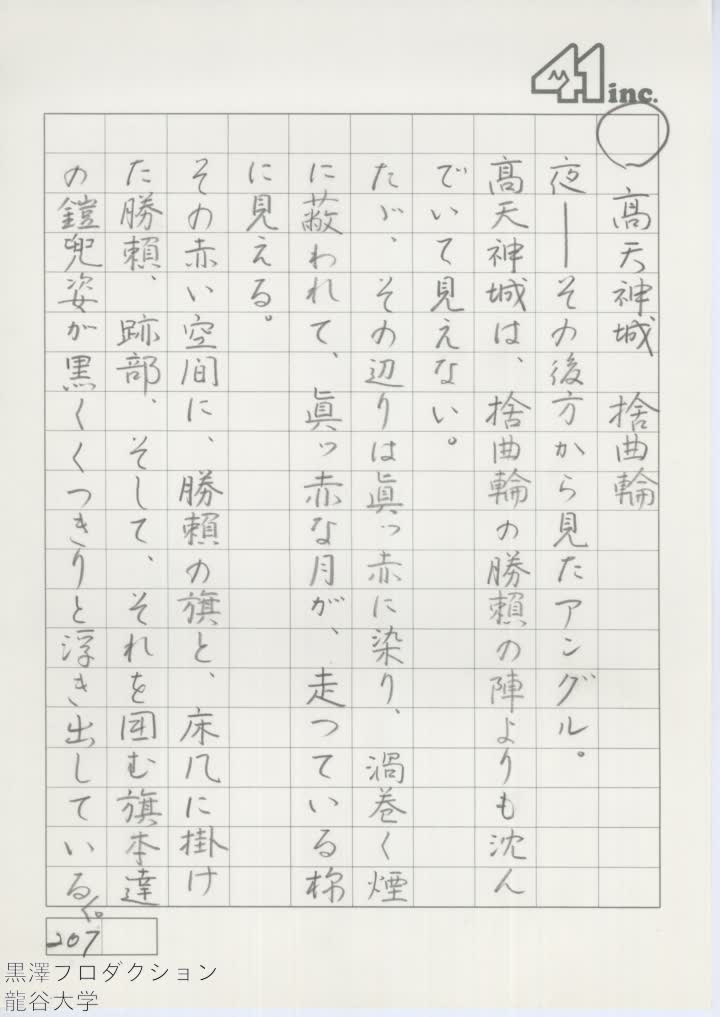 41 inc.
○、高天神城　捨曲輪
夜――その後方から見たアングル。
高天神城は、捨曲輪の勝頼の陣よりも沈ん
でいて見えない。
たゞ、その辺りは眞ッ赤に染り、渦巻く煙
に蔽われて、眞ッ赤な月が、走つている様
に見える。
その赤い空間に、勝頼の旗と、床几に掛け
た勝頼、跡部、そして、それを囲む旗本達
の鎧兜姿が黒くくつきりと浮き出している。
207
黒澤プロダクション
龍谷大学